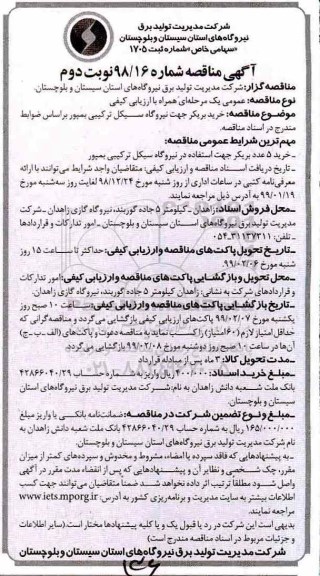 شرکت مدیریت تولید برق
نیروگاه‌های استان سیستان و بلوچستان
«سهامی خاص» شماره ثبت ۱۷۰۵
آگهی مناقصه شماره ۹۸/۱۶ نوبت دوم
مناقصه گزار: شرکت مدیریت تولید برق نیروگاههای استان سیستان و بلوچستان.
نوع مناقصه: عمومی یک مرحله‌ای همراه با ارزیابی کیفی
موضوع مناقصه: خرید بریکر جهت نیروگاه سیکل ترکیبی بمپور براساس ضوابط
مندرج در اسناد مناقصه.
مهم‌ترین شرایط عمومی مناقصه:
ـ خرید ۵ عدد بریکر جهت استفاده در نیروگاه سیکل ترکیبی بمپور
ـ تاریخ دریافت اسناد مناقصه و ارزیابی کیفی: متقاضیان واجد شرایط می‌توانند با ارائه
معرفی‌نامه کتبی در ساعات اداری از روز شنبه مورخ ۹۸/۱۲/۲۴ لغایت روز سه‌شنبه مورخ
۹۹/۰۱/۱۹ به آدرس ذیل مراجعه نمایند.
ـ محل فروش اسناد: زاهدان ـ کیلومتر ۵ جاده گوربند، نیروگاه گازی زاهدان ـ شرکت
مدیریت تولید برق نیروگاه‌های استان سیستان و بلوچستان ـ امور تدارکات و قراردادها
ـ تلفن: ۳۱۱۳۷۳۱۱-۰۵۴
ـ تاریخ تحویل پاکت‌های مناقصه و ارزیابی کیفی: حداکثر تا ساعت ۱۵ روز
شنبه مورخ ۹۹/۰۲/۰۶
ـ محل تحویل و بازگشایی پاکت‌های مناقصه و ارزیابی کیفی: امور تدارکات
و قراردادهای شرکت به نشانی: زاهدان کیلومتر ۵ جاده گوربند، نیروگاه گازی زاهدان.
ـ تاریخ بازگشایی پاکت‌های مناقصه و ارزیابی کیفی: ساعت ۱۰ صبح روز
یکشنبه مورخ ۹۹/۰۲/۰۷ پاکت‌های ارزیابی کیفی بازگشایی می‌گردد و مناقصه‌گرانی که
حداقل امتیاز لازم (۶۰ امتیاز) را کسب نمایند به مناقصه دعوت و پاکت‌های (الف ـ ب ـ ج)
آن‌ها در ساعت ۱۰ صبح روز دوشنبه مورخ ۹۹/۰۲/۰۸ بازگشایی می‌گردد.
ـ مدت تحویل کالا: ۳ ماه پس از مبادله قرارداد
ـ مبلغ خرید اسناد: ۴۰۰/۰۰۰ ریال واریز به شماره حساب ۴۲۸۶۶۰۴۰/۲۹
بانک ملت شعبه دانش زاهدان به نام: شرکت مدیریت تولید برق نیروگاه‌های استان
سیستان و بلوچستان.
ـ مبلغ و نوع تضمین شرکت در مناقصه: ضمانت‌نامه بانکی یا واریز مبلغ
۱۶۵/۰۰۰/۰۰۰ ریال به شماره حساب ۴۲۸۶۶۰۴۰/۲۹ بانک ملت شعبه دانش زاهدان به
نام شرکت مدیریت تولید برق نیروگاه‌های استان سیستان و بلوچستان.
ـ به پیشنهادهایی که فاقد سپرده یا امضاء، مشروط و مخدوش و سپرده‌های کمتر از میزان
مقرر، چک شخصی و نظایر آن و پیشنهادهایی که پس از انقضاء مدت مقرر در آگهی
واصل شود مطلقاً ترتیب اثر داده نخواهد شد ضمناً متقاضیان می‌توانند جهت کسب
اطلاعات بیشتر به سایت مدیریت و برنامه‌ریزی کشور به آدرس: www.iets.mporg.ir
مراجعه نمایند.
بدیهی است این شرکت در رد یا قبول یک و یا کلیه پیشنهادها مختار است. (سایر اطلاعات و
جزئیات مربوط در اسناد مناقصه مندرج است)
شرکت مدیریت تولید برق نیروگاه‌های استان سیستان و بلوچستان